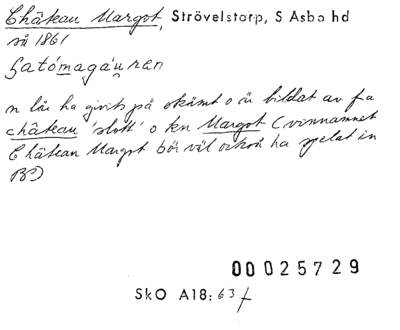 Château Margot, Strövelstorp, S Åsbo hd
så 1861
Satómagåuren
n lär ha givits på skämt o är bildat av fra
château 'slott' o kn Margot (vinnamnet
Château Margot bör väl också ha spelat in
BE)
00025729
SkO A18: 63